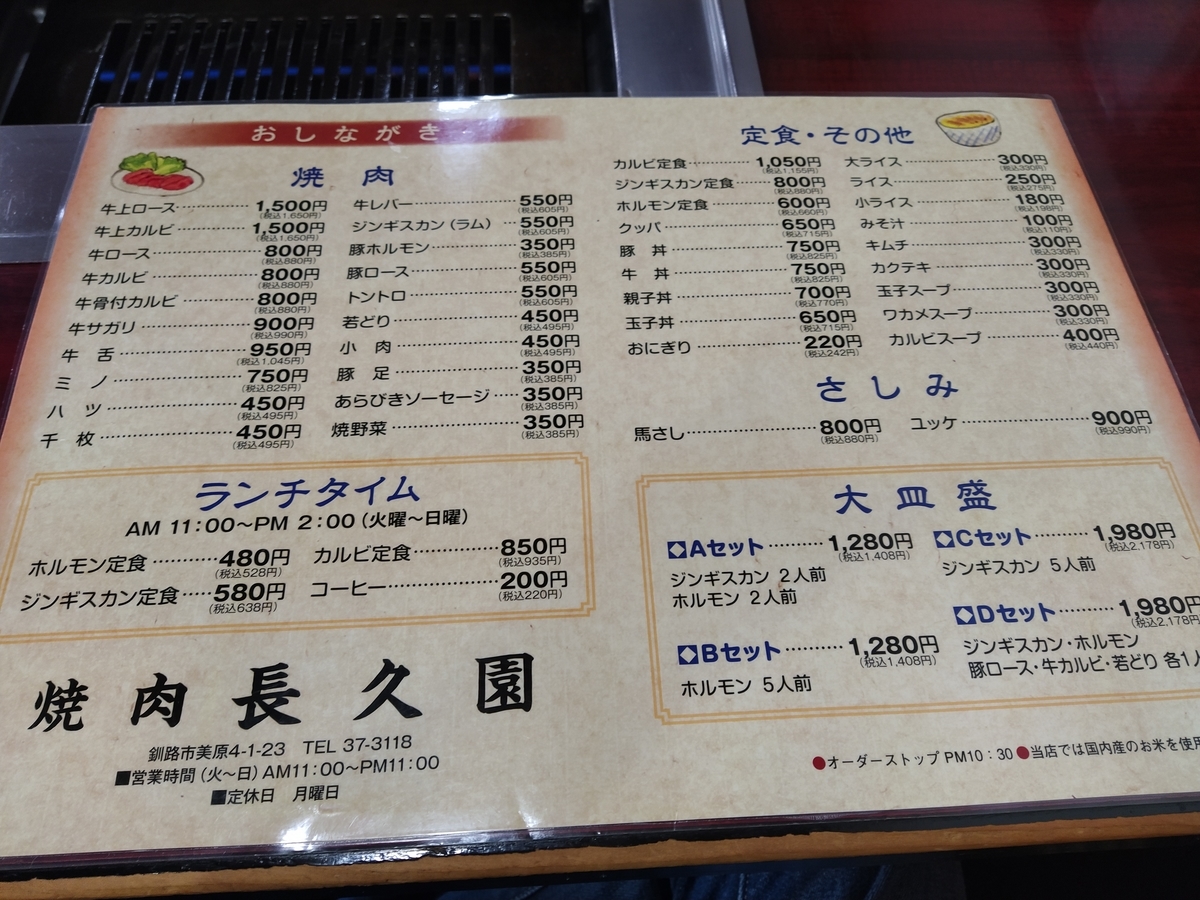 おしながき
焼肉
牛上ロース 1,500円
(税込1,650円)
牛上カルビ 1,500円
(税込1,650円)
牛ロース 800円
(税込880円)
牛カルビ 800円
(税込880円)
牛骨付カルビ 800円
(税込880円)
牛サガリ 900円
(税込990円)
牛舌 950円
(税込1,045円)
ミノ 750円
(税込825円)
ハツ 450円
(税込495円)
千枚 450円
(税込495円)
牛レバー 550円
(税込605円)
ジンギスカン(ラム) 550円
(税込605円)
豚ホルモン 350円
(税込385円)
豚ロース 550円
(税込605円)
トントロ 550円
(税込605円)
若どり 450円
(税込495円)
小肉 450円
(税込495円)
豚足 350円
(税込385円)
あらびきソーセージ 350円
(税込385円)
焼野菜 350円
(税込385円)
ランチタイム
AM 11:00〜PM 2:00(火曜〜日曜)
ホルモン定食 480円
(税込528円)
ジンギスカン定食 580円
(税込638円)
カルビ定食 850円
(税込935円)
コーヒー 200円
(税込220円)
焼肉長久園
釧路市美原4-1-23 TEL 37-3118
■営業時間(火〜日)AM11:00〜PM11:00
■定休日 月曜日
定食・その他
カルビ定食 1,050円
(税込1,155円)
ジンギスカン定食 800円
(税込880円)
ホルモン定食 600円
(税込660円)
クッパ 650円
(税込715円)
豚丼 750円
(税込825円)
牛丼 750円
(税込825円)
親子丼 700円
(税込770円)
玉子丼 650円
(税込715円)
おにぎり 220円
(税込242円)
大ライス 300円
(税込330円)
ライス 250円
(税込275円)
小ライス 180円
(税込198円)
みそ汁 100円
(税込110円)
キムチ 300円
(税込330円)
カクテキ 300円
(税込330円)
玉子スープ 300円
(税込330円)
ワカメスープ 300円
(税込330円)
カルビスープ 400円
(税込440円)
さしみ
馬さし 800円
(税込880円)
ユッケ 900円
(税込990円)
大皿盛
Aセット 1,280円
(税込1,408円)
ジンギスカン 2人前
ホルモン 2人前
Bセット 1,280円
(税込1,408円)
ホルモン 5人前
Cセット 1,980円
(税込2,178円)
ジンギスカン 5人前
Dセット 1,980円
(税込2,178円
ジンギスカン・ホルモン
豚ロース・牛カルビ・若どり 各1人
●オーダーストップ PM10:30 ●当店では国内産のお米を使用